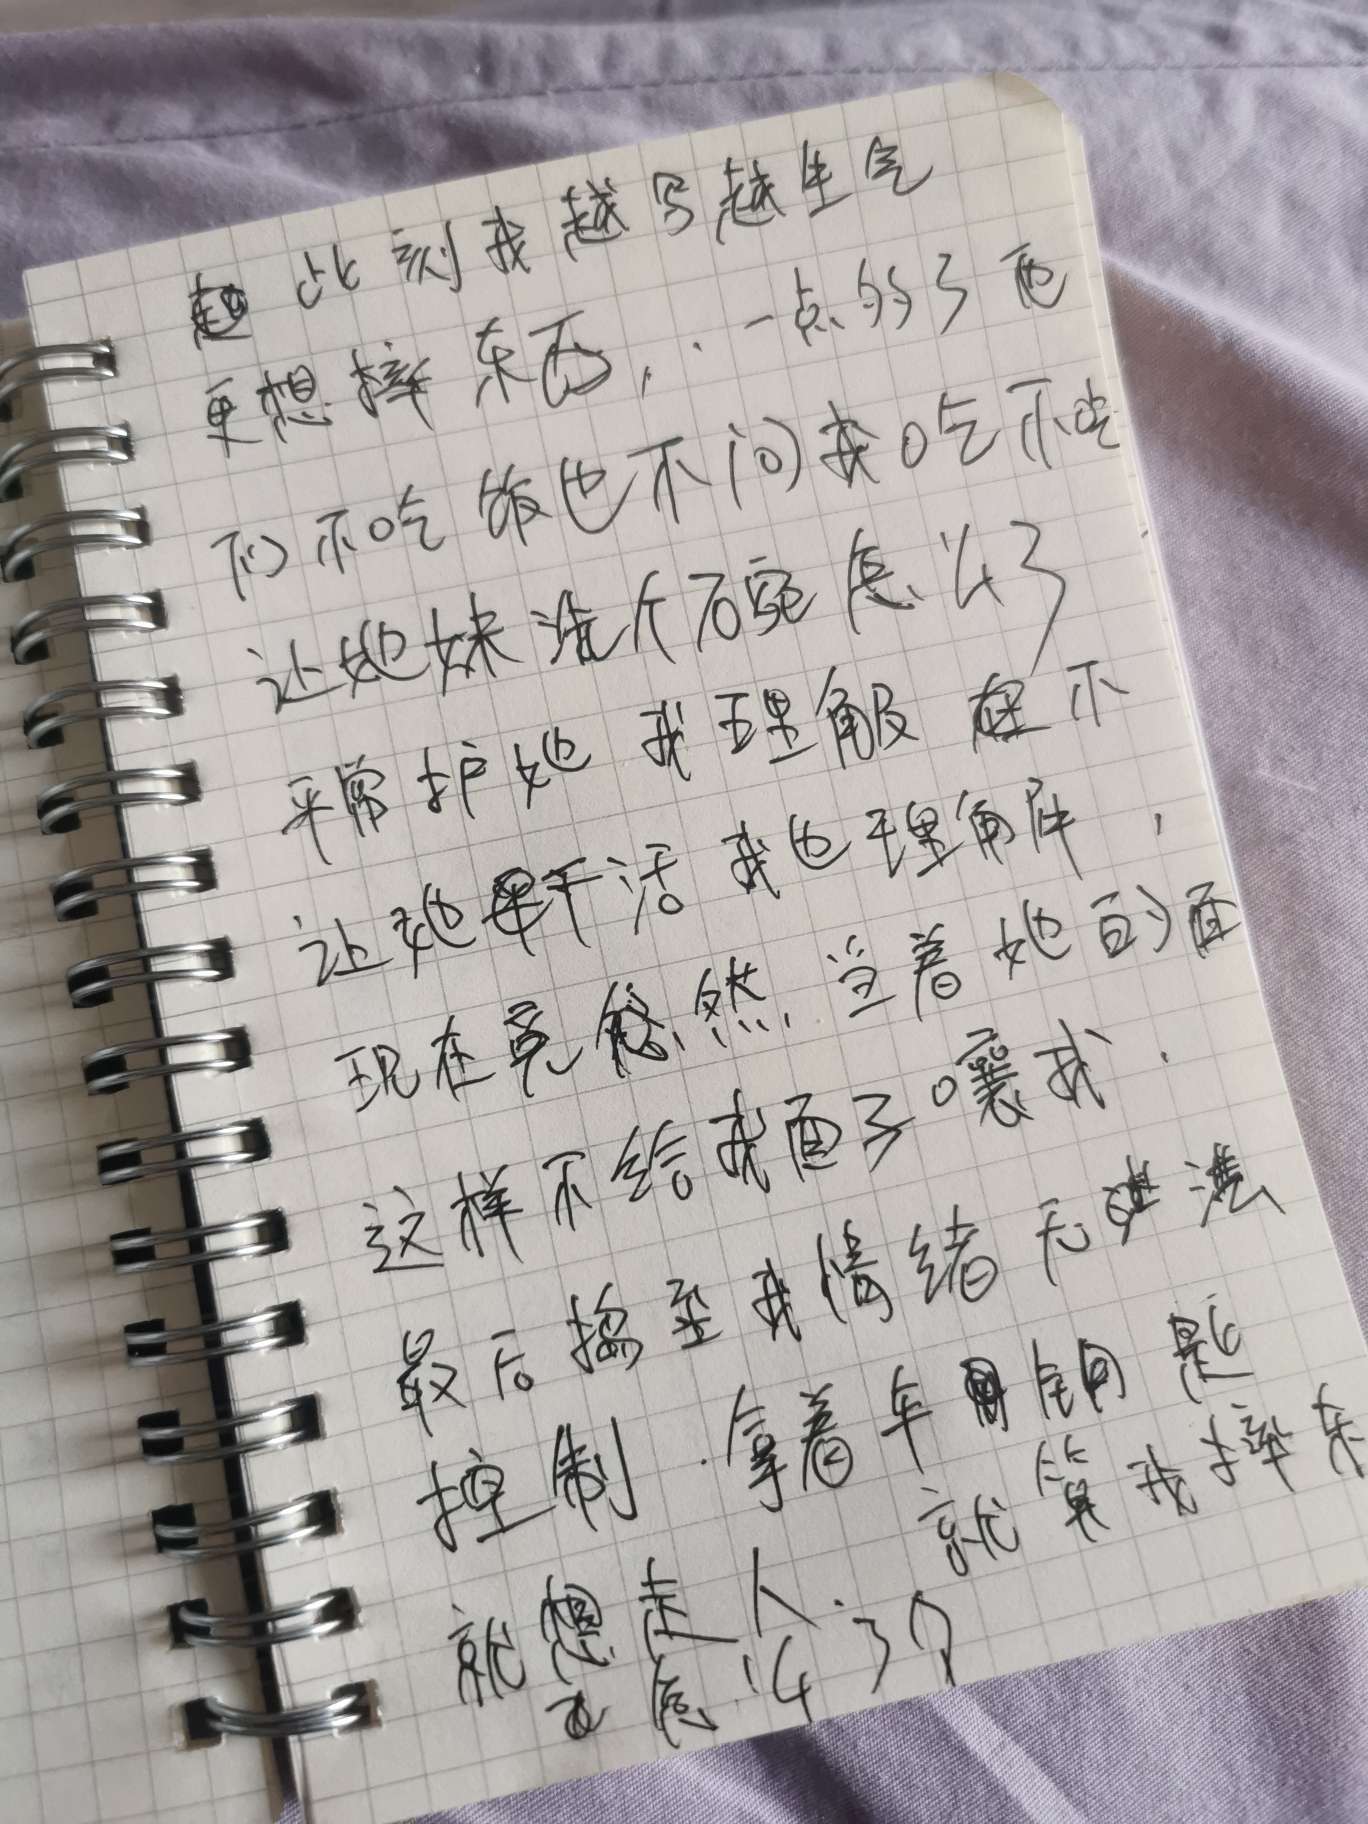 此刻我越写越生气
更想摔东西，.一点多了 他
们不吃饭也不问我吃不吃
让她妹洗个碗怎么了
平常护她 我理解 在不
让她干活 我也理解，
现在竟然当着她的面
这样不给我面子嚷我.
最后搞至我情绪无法
控制.拿着车钥匙
就想走人. 就算我摔东
西怎么了?